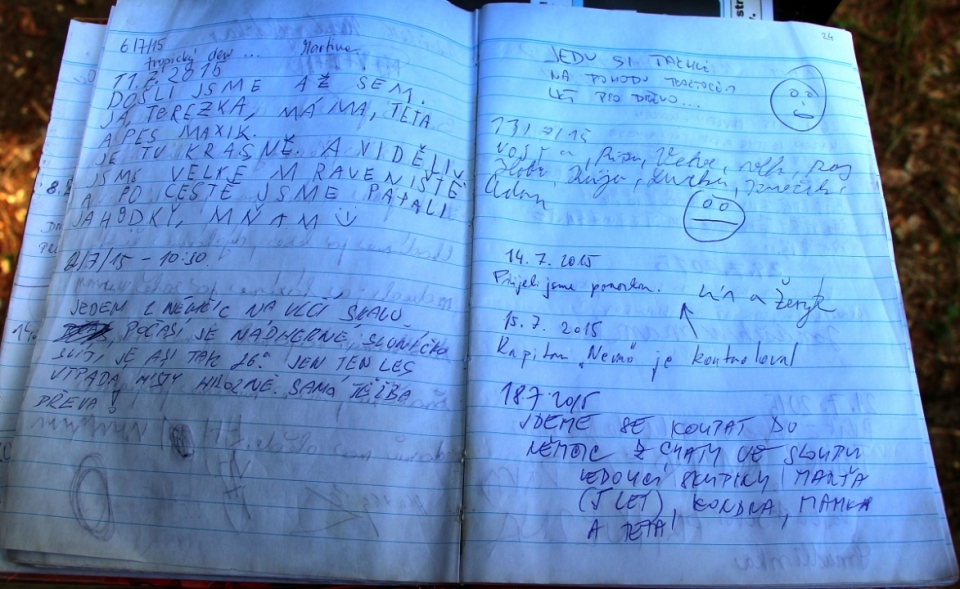 6/7/15
tropický den ... Martina
11.7.2015
DOŠLI JSME AŽ SEM.
JÁ, TEREZKA, MÁMA, TETA
A PES MAXIK.
JE TU KRÁSNĚ. A VIDĚLI
JSME VELKÉ MRAVENIŠTĚ
A PO CESTĚ JSME PAPALI
JAHODKY, MŇAM
/7/15 - 10:30.
JEDEM Z NĚMČIC NA VLČÍ SKÁLU
POČASÍ JE NÁDHERNÉ, SLUNÍČKO
SVÍTÍ, JE ASI TAK 26° JEN TEN LES
VYPADÁ MÍSTY HROZNĚ. SAMÁ TĚŽBA
DŘEVA!
24
JEDU SI TAKHLE
NA POHODU
LET PRO DŘEVO...
13/7/15
Adam
14.7.2015
Přijeli jsme ponorkou. a Ženyk
15.7.2015
Kapitán "Nemo" je kontroloval
18.7.2015
JDEME SE KOUPAT DO
NĚMČIC Z CHATY VE SLOUPU
VEDOUCÍ SKUPINY MARŤA
(5 LET), KONDRA, MAMKA
A TETA!